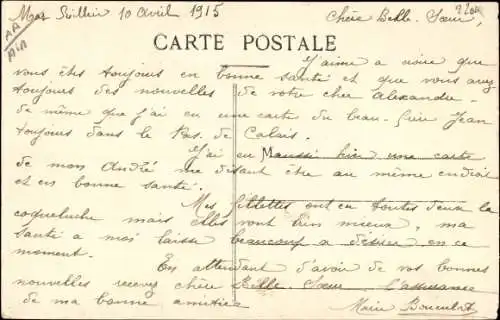 10 Avril 1915
Chère Belle-Sœur,
CARTE POSTALE
J'aime a croire que
vous êtes toujours en bonne santé et que vous avez
toujours des nouvelles de votre cher Alexandre
de même que j'ai eu une carte du beau-frère Jean
toujours dans le Pas de Calais.
J'ai eu aussi hier une carte
de mon André me disant être au même endroit
et en bonne santé.
Mes fillettes ont eu toutes deux la
coqueluche mais elles vont bien mieux, ma
santé a moi laisse beaucoup a désirer en ce
moment.
En attendant d'avoir de vos bonnes
nouvelles recevez chère Belle-Sœur l'assurance
de ma bonne amitiée
Marie